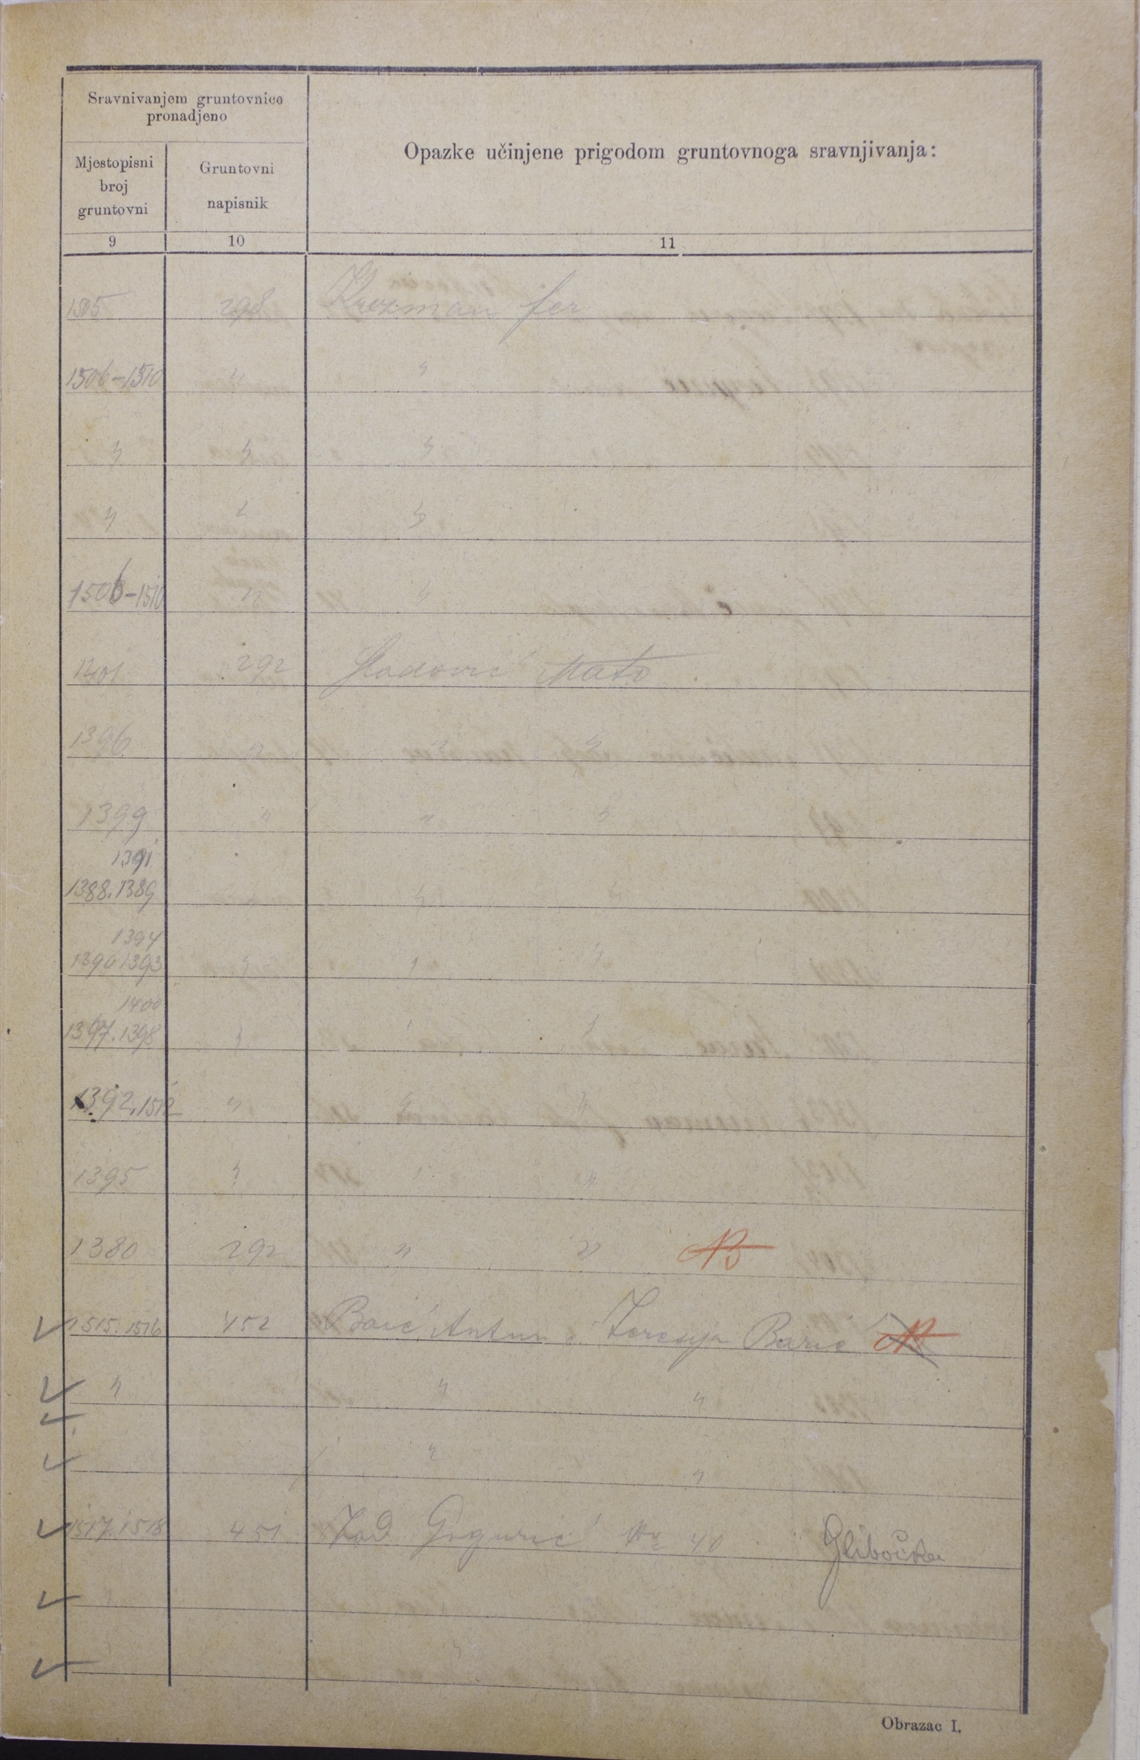 Sravnivanjem gruntovnice
pronadjeno
Opazke učinjene prigodom gruntovnoga sravnjivanja:
Mjestopisni
broj
gruntovni
Gruntovni
napisnik
9 10 11
1505 298
1506-1510 " "
" " "
" " "
1506-1510 " "
1401 292 Mato
1396 " " "
1399 " " "
1391
1388.1389 " "
1394
1390 1393 " " "
1400
1397.1398 " " "
1392,1512 " " "
1395 " " "
1380 292 " "
1515.1516 452 Antun i Barić
" " "
" "
1517.1518 451 Grgurić 40 Glibočka
Obrazac I.